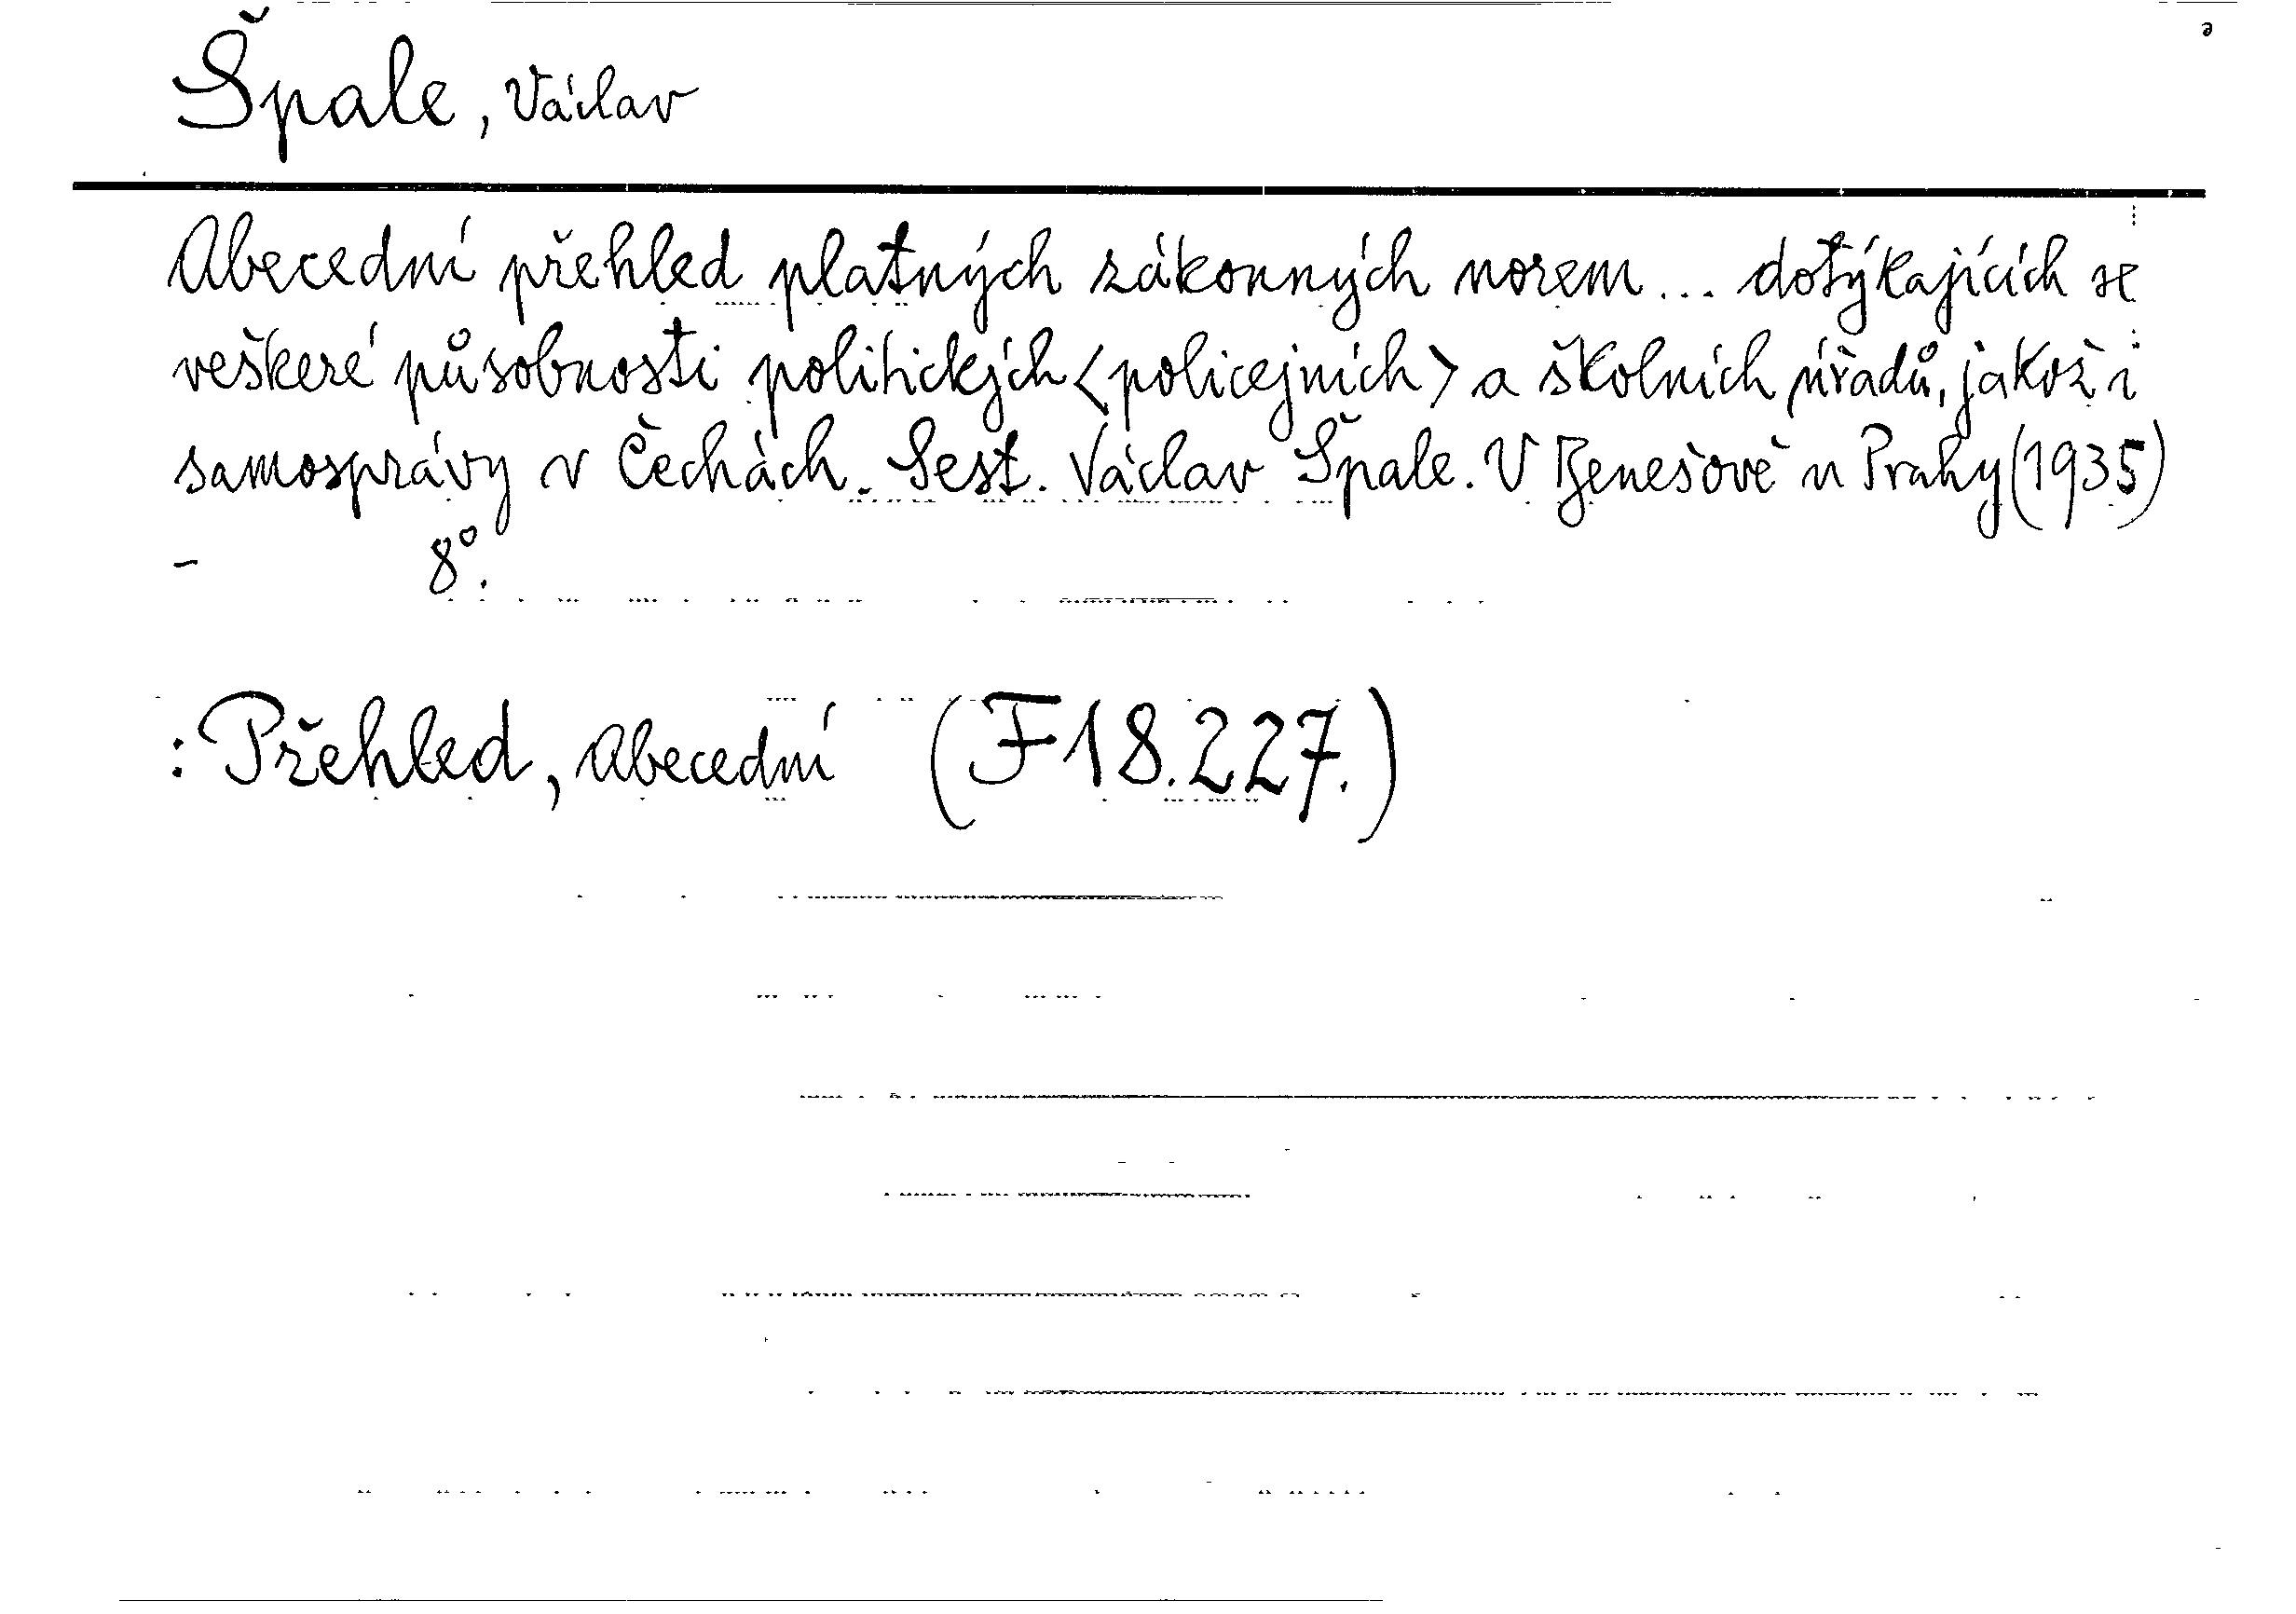 Špale, Václav
Abecední přehled platných zákonných norem ... dotýkajících se
veškeré působnosti politických <policejních> a školních úřadů, jakož i
samosprávy v Čechách. Sest. Václav Špale. V Benešově u Prahy (1935)
- 8°.
: Přehled, abecední (F 18.227.)